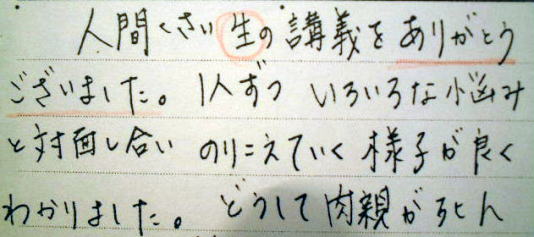 人間くさい生の講義をありがとう
ございました。1人ずつ いろいろな悩み
と対面し合い のりこえていく様子が良く
わかりました。どうして肉親が死ん